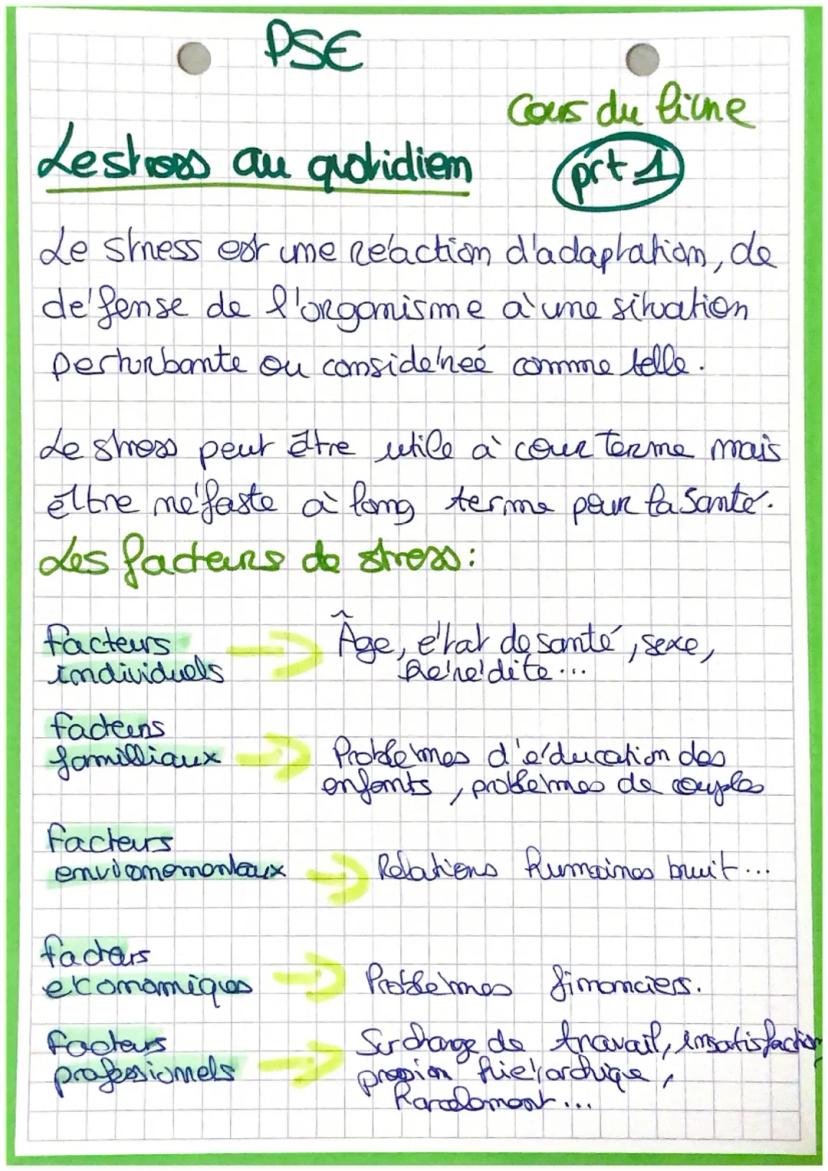 PSE
Cours du livre
Le stress au quotidien
prt 1
Le stress est une réaction d'adaptation, de
défense de l'organisme à une situation
perturbante ou considéreé comme telle.
Le stress peut être utile à cour terme mais
être néfaste à long terme pour la santé.
Les facteurs de stress :
facteurs
individuels
Âge, état de santé, sexe,
hérédité...
facteurs
familliaux
Problèmes d'éducation des
enfants, problèmes de couples
facteurs
environnementaux
Relations humaines bruit...
facteurs
économiques
Problèmes financiers.
facteurs
professionnels
Surcharge de travail, insatisfaction
pression hiérarchique,
harcèlement...